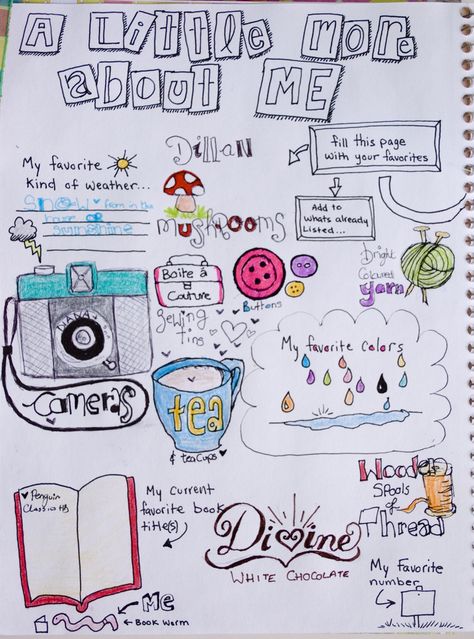 A Little More
about ME
My favorite
Kind of weather...
Snow ♥ from in the
house or
sunshine
Dillan
Mushrooms
fill this page
with your favorites
Add to
whats already
Listed...
Bright
Coloured
yarn
DIANA
Cameras
Boite à
Couture
Sewing
tins
Buttons
tea
& teacups ♥
My favorite colors
♥ Penguin
Classic HB
My current
favorite book
title(s)
Me
Book worm
Divine
WHITE CHOCOLATE
Wooden
Spools
of
Thread
My favorite
number